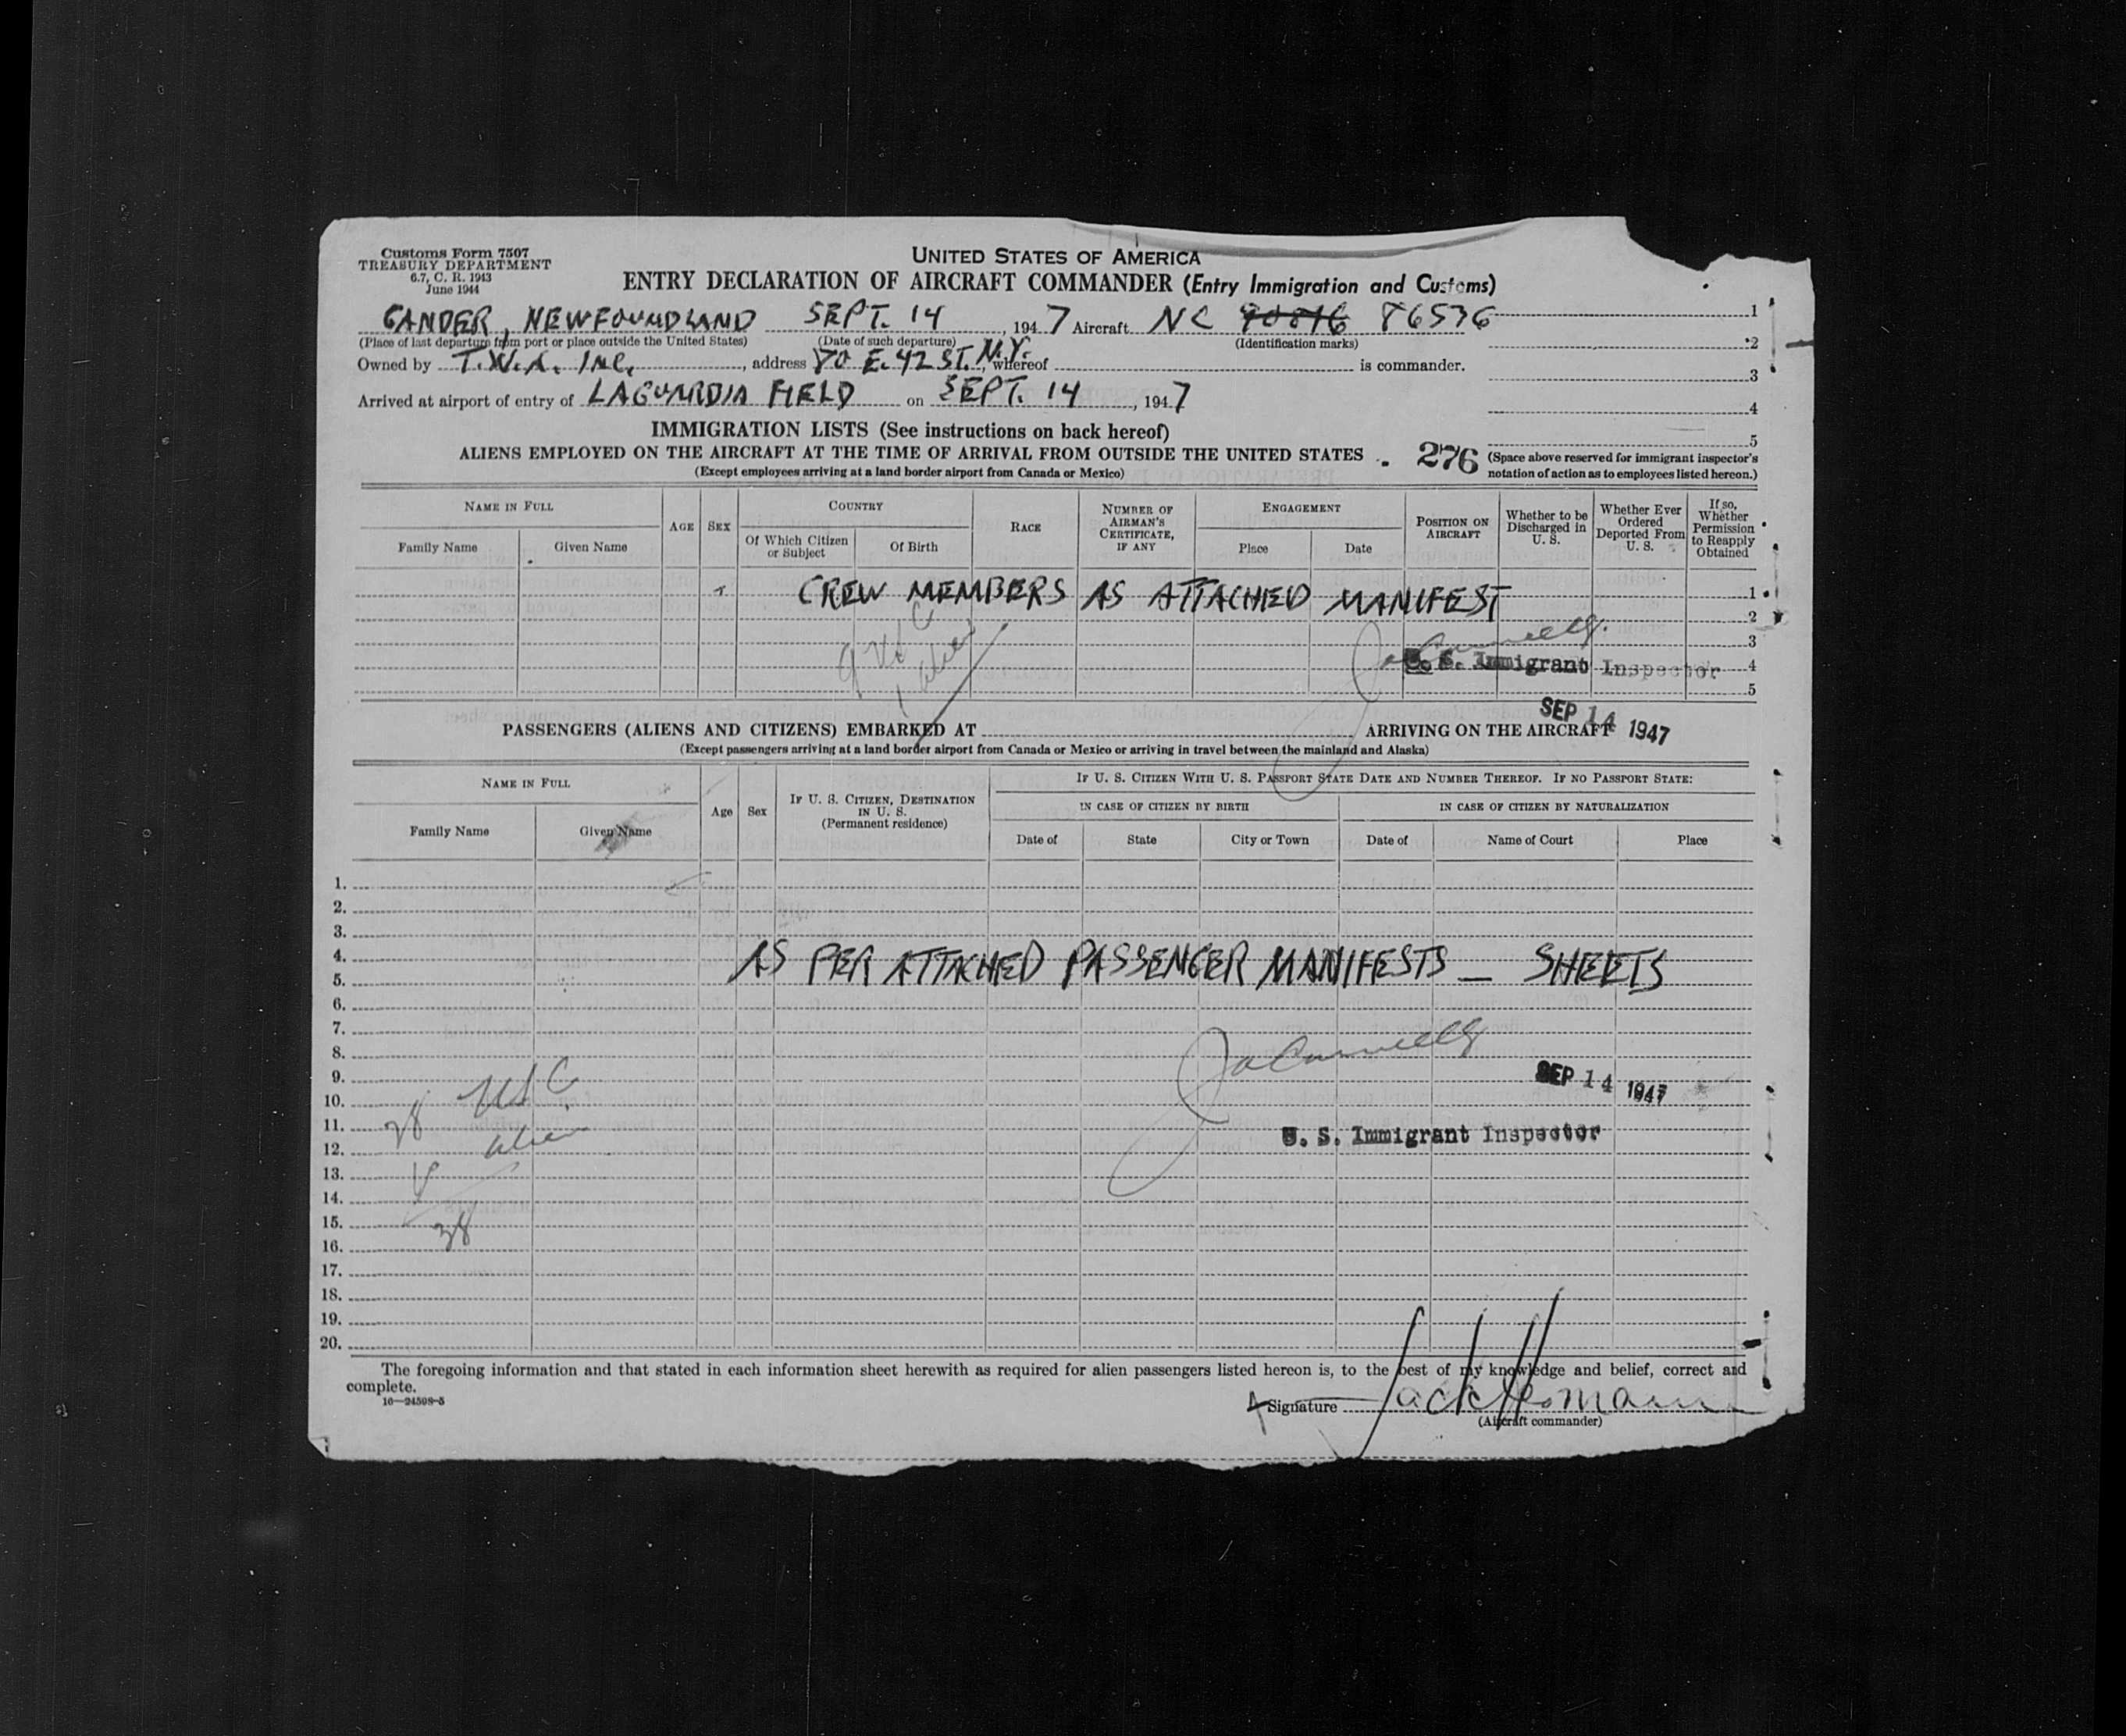 Customs Form 7507
TREASURY DEPARTMENT
6.7, C. R. 1943
June 1944
UNITED STATES OF AMERICA
ENTRY DECLARATION OF AIRCRAFT COMMANDER (Entry Immigration and Customs)
GANDER, NEWFOUNDLAND SEPT. 14, 1947 Aircraft NC 86536
(Place of last departure from port or place outside the United States) (Date of such departure) (Identification marks)
Owned by T.W.A. INC., address 80 E. 42 ST. N.Y., whereof is commander.
Arrived at airport of entry of LAGUARDIA FIELD on SEPT. 14, 1947
1
2
3
4
5
IMMIGRATION LISTS (See instructions on back hereof)
ALIENS EMPLOYED ON THE AIRCRAFT AT THE TIME OF ARRIVAL FROM OUTSIDE THE UNITED STATES
(Except employees arriving at a land border airport from Canada or Mexico)
276
(Space above reserved for immigrant inspector's
notation of action as to employees listed hereon.)
NAME IN FULL
Family Name
Given Name
AGE
SEX
COUNTRY
Of Which Citizen
or Subject
Of Birth
RACE
NUMBER OF
AIRMAN'S
CERTIFICATE,
IF ANY
ENGAGEMENT
Place
Date
POSITION ON
AIRCRAFT
Whether to be
Discharged in
U. S.
Whether Ever
Ordered
Deported From
U. S.
If so,
Whether
Permission
to Reapply
Obtained
CREW MEMBERS AS ATTACHED MANIFEST 1
2
3
4
5
9 USC
1 alien
U. S. Immigrant Inspector
SEP 14 1947
PASSENGERS (ALIENS AND CITIZENS) EMBARKED AT ARRIVING ON THE AIRCRAFT
(Except passengers arriving at a land border airport from Canada or Mexico or arriving in travel between the mainland and Alaska)
NAME IN FULL
Family Name
Given Name
Age
Sex
IF U. S. CITIZEN, DESTINATION
IN U. S.
(Permanent residence)
IF U. S. CITIZEN WITH U. S. PASSPORT STATE DATE AND NUMBER THEREOF. IF NO PASSPORT STATE:
IN CASE OF CITIZEN BY BIRTH
IN CASE OF CITIZEN BY NATURALIZATION
Date of
State
City or Town
Date of
Name of Court
Place
1.
2.
3.
4.
5.
AS PER ATTACHED PASSENGER MANIFESTS — SHEETS
6.
7.
8.
9.
10.
11.
12.
13.
14.
15.
16.
17.
18.
19.
20.
USC
alien
38
SEP 14 1947
U. S. Immigrant Inspector
The foregoing information and that stated in each information sheet herewith as required for alien passengers listed hereon is, to the best of my knowledge and belief, correct and
complete.
16—24598-5
Signature Jack
(Aircraft commander)